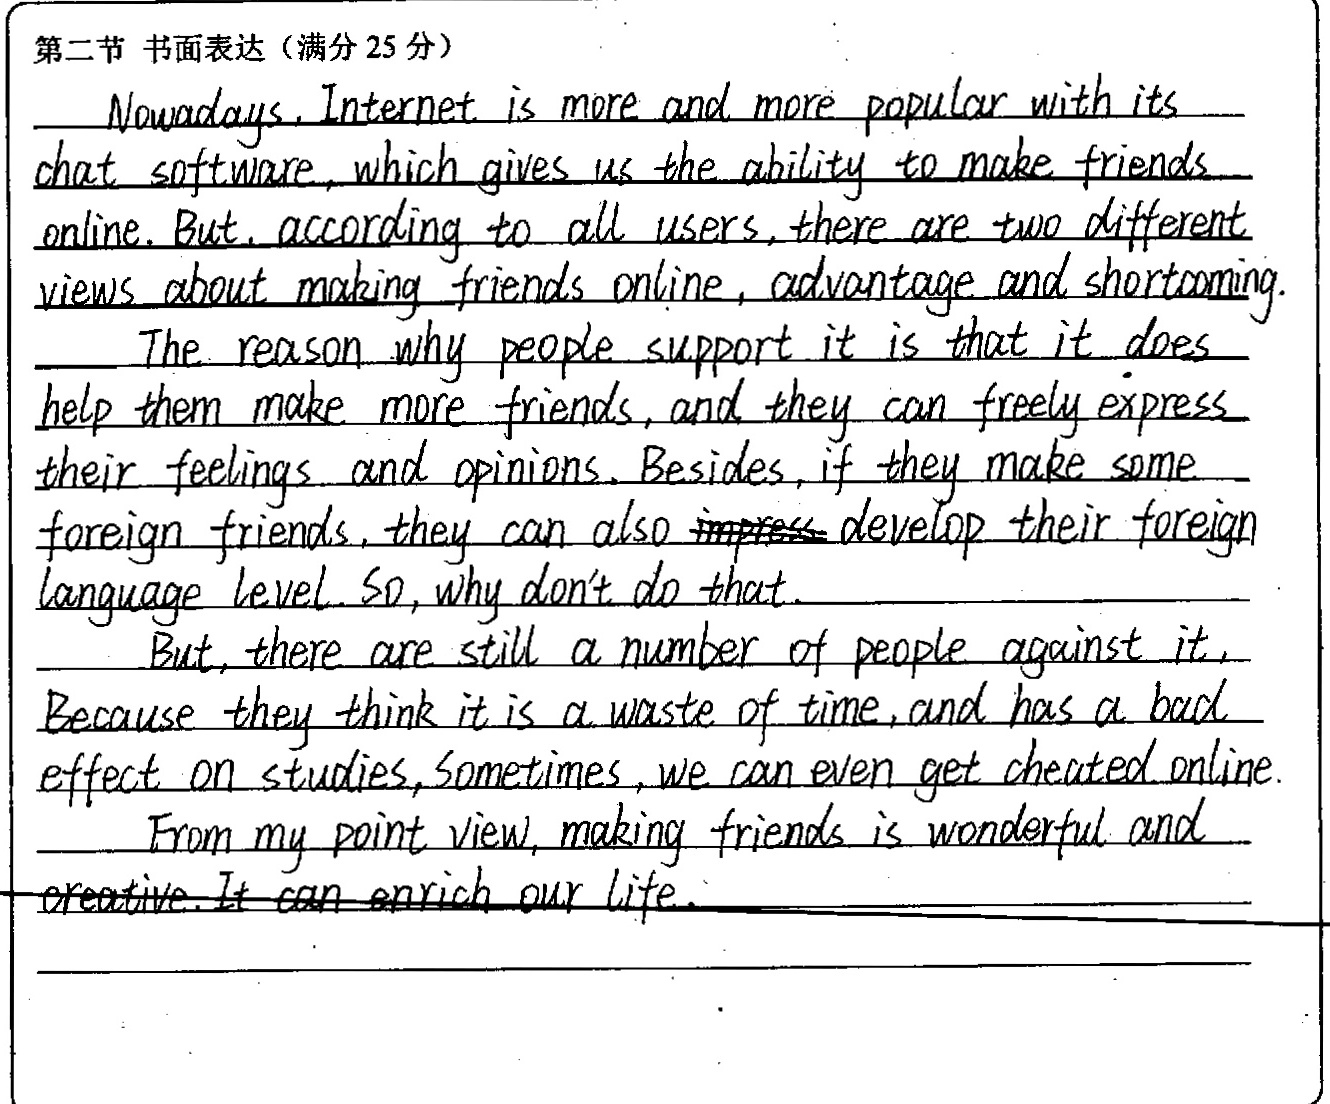 第二节 书面表达（满分 25 分）
Nowadays, Internet is more and more popular with its
chat software, which gives us the ability to make friends
online. But, according to all users, there are two different
views about making friends online, advantage and shortcoming.
The reason why people support it is that it does
help them make more friends, and they can freely express
their feelings and opinions. Besides, if they make some
foreign friends, they can also impress develop their foreign
language level. So, why don't do that.
But, there are still a number of people against it,
Because they think it is a waste of time, and has a bad
effect on studies, Sometimes, we can even get cheated online.
From my point view, making friends is wonderful and
creative. It can enrich our life.